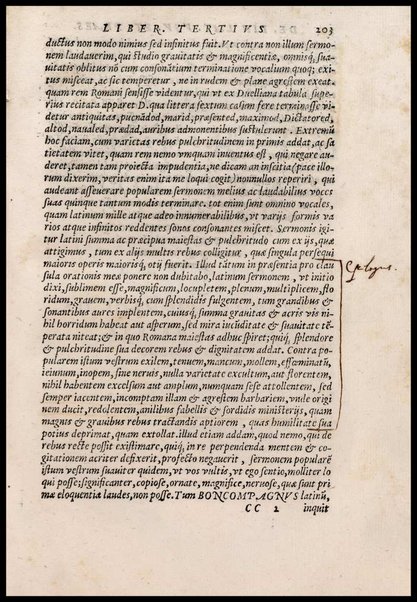 LIBER. TERTIVS. 203
ductus non modo nimius sed infinitus fuit. Vt contra non illum sermo-
nem laudauerim, qui studio grauitatis & magnificentiæ, omnisq́, sua-
uitatis oblitus nō cum consonātium terminatione vocalium quoq; exi-
tus misceat, ac sic temperetur, ne in rudem & plane agrestem exeat.
quam rem Romani sensisse videntur, qui vt ex Duelliana tabula supe-
rius recitata apparet D. qua littera sextum casum fere terminasse vi-
detur antiquitas, pucnādod, marid, præsented, maximod, Dictatored,
altod, naualed, prædad, auribus admonentibus sustulerunt. Extremū
hoc faciam, cum varietas rebus pulchritudinem in primis addat, ac sa
tietatem vitet, quam rem nemo vmquam inuentus est, qui negare au-
deret, tamen tam proiecta impudentia, ne dicam an inscitia (pace illo-
rum dixerim, veritas enim ita me loqui cogit) nonnullos reperiri, qui
audeant asseuerare popularem sermonem melius ac laudabilius voces
suas quinque tantum modis terminare. tot enim sunt omnino vocales,
quam latinum mille atque adeo innumerabilibus, vt varijs formis va
rios atque infinitos reddentes sonos consonantes miscet. Sermonis igi-
tur latini summa ac præcipua maiestas & pulchritudo cum ex ijs, quæ
attigimus, tum ex alijs multis rebus colligitur, quæ singula persequi
maioris operæ maiorisq́, otij fuerit. Illud tātum in præsentia pro clau
sula orationis meæ ponere non dubitabo, latinum sermonem, vt initio
dixi, sublimem esse, magnificum, locupletem, plenum, multiplicem, flo
ridum, grauem, verbisq́, cum splendidis fulgentem, tum grandibus &
sonantibus aures implentem, cuiusq́, summa grauitas & acris vis ni-
hil horridum habeat aut asperum, sed mira iucūditate & suauitate tē-
perata niteat; & in quo Romana maiestas adhuc spiret; quiq́, splendore
& pulchritudine sua decorem rebus & dignitatem addat. Contra po-
pularem istum vestrum exilem, tenuem, mancum, mollem, effeminatū,
ieiunum, inopem, sine neruis, nulla varietate excultum, aut florentem,
nihil habentem excelsum aut amplum, numquam sese attollentem, sed
semper iacentem, incomptam illam & agrestem barbariem, vnde origi
nem ducit, redolentem, anilibus fabellis & sordidis ministerijs, quam
magnis & grauibus rebus tractandis aptiorem, quas humilitate sua
potius deprimat, quam extollat. illud etiam addam, quod nemo, qui de
rebus recte possit existimare, quiq́, in re perpendenda mentem & co-
gitationem acriter defixerit, profecto negauerit, sermonem popularē
istum vestrum suauiter quidem, vt vos vultis, vt ego sentio, molliter lo
qui posse; significanter, copiose, ornate, magnifice, neruose, quæ sunt pri
mæ eloquentiæ laudes, non posse. Tum BONCOMPAGNVS latinū,
CC 2 inquit
Epilogus.